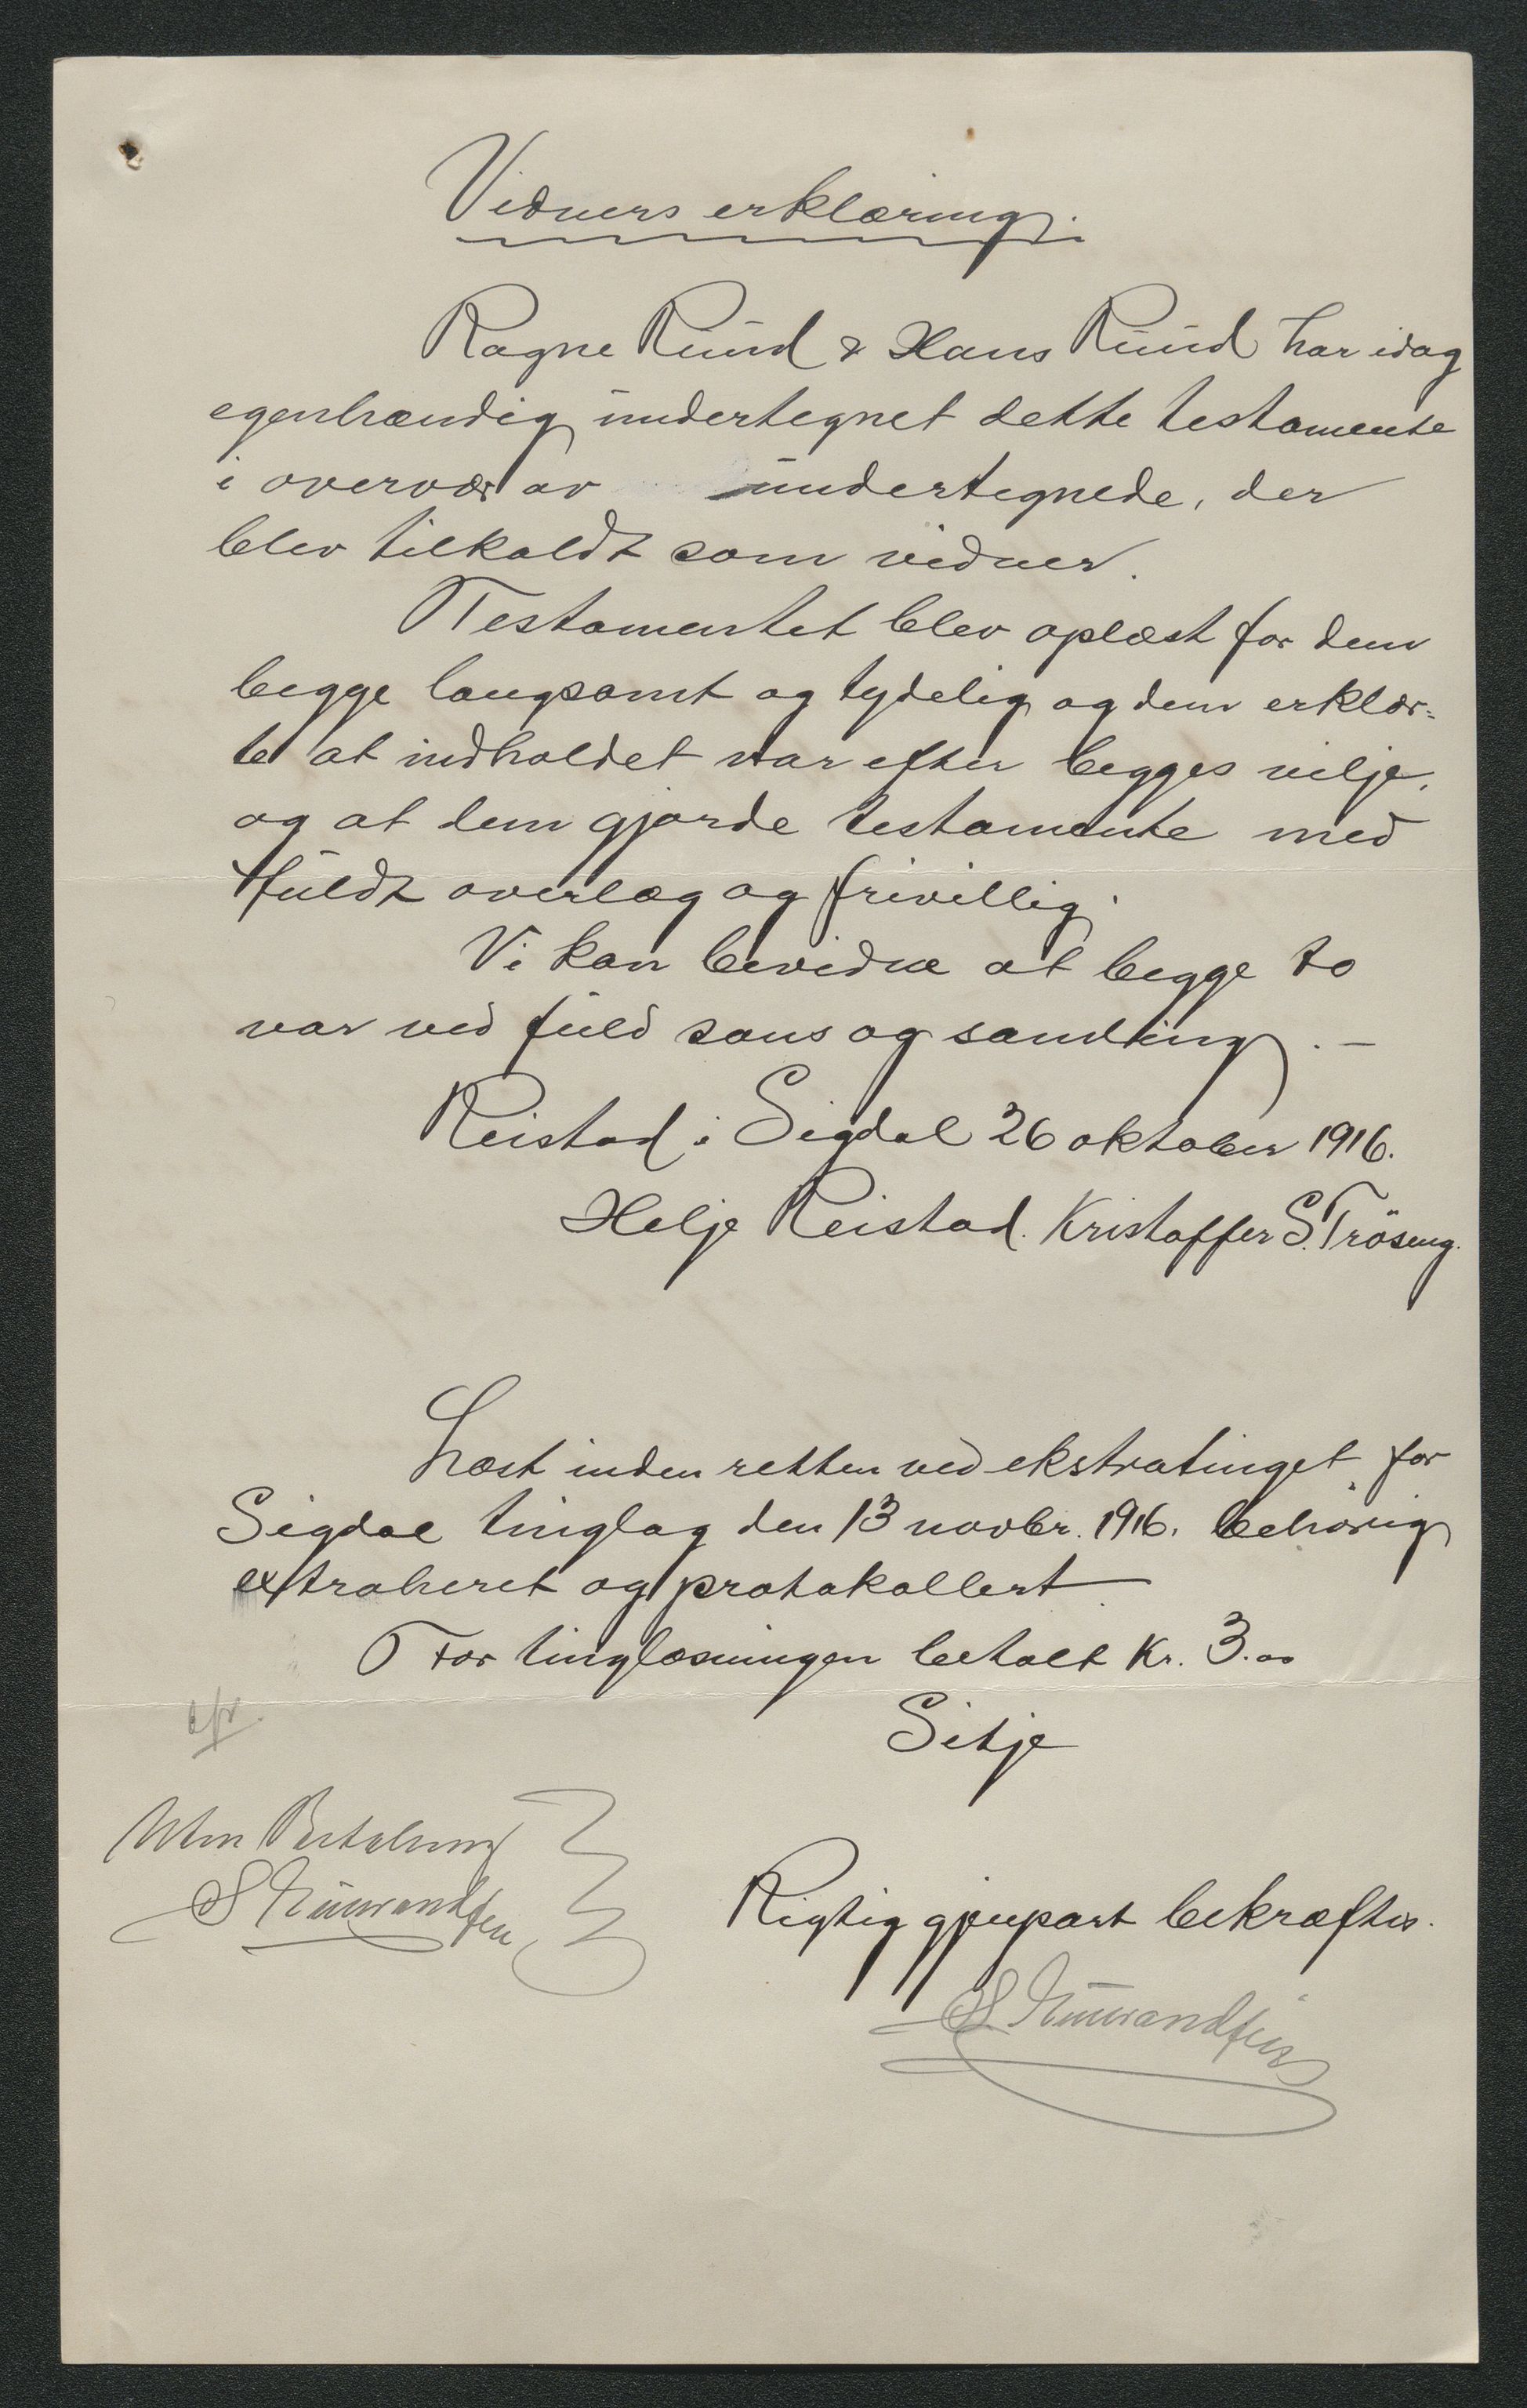 Vidners erklæring.
Ragne Ruud & Hans Ruud har idag
egenhændig undertegnet dette testamente
i overvær av undertegnede, der
blev tilkaldt som vidner.
Testamentet blev oplæst for dem
begge langsomt og tydelig og dem erklær=
te at indholdet var efter begges vilje,
og at dem gjorde testamente med
fuldt overlæg og frivillig.
Vi kan bevidne at begge to
var ved fuld sans og samling. —
Reistad i Sigdal 26 oktober 1916.
Helje Reistad. Kristoffer S. Trøseng.
Læst inden retten ved ekstratinget for
Sigdal tinglag den 13 novbr. 1916. behørig
extraheret og protokollert
For tinglæsningen betalt Kr. 3.00
Sitje
Uten Betaling
Rigtig gjenpart bekræftes.